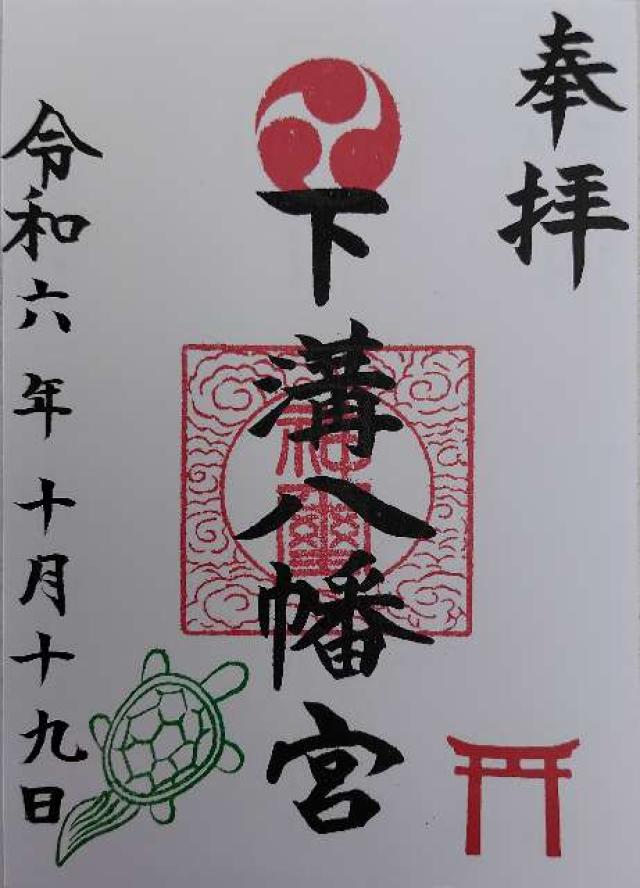 奉拝
下溝八幡宮
令和六年十月十九日